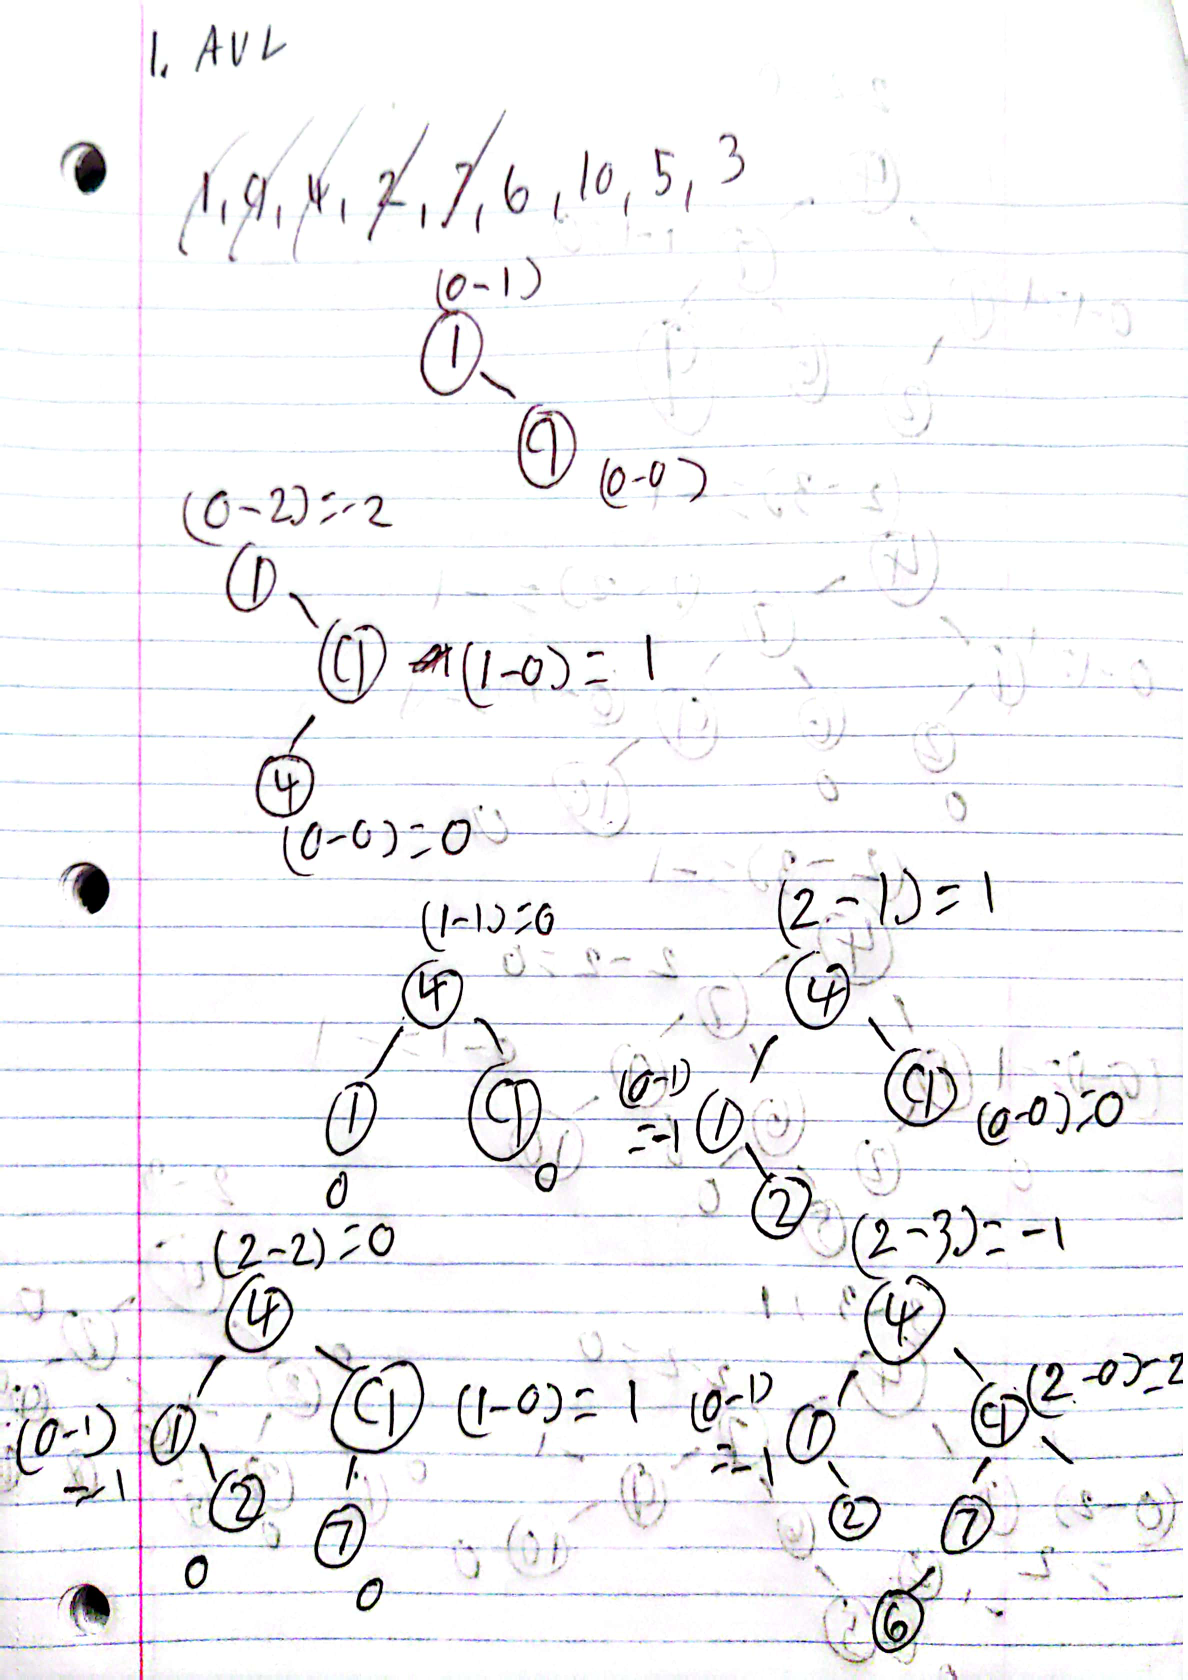 1. AVL
1, 9, 4, 2, 7, 6, 10, 5, 3
(0-1)
1
9
(0-0)
(0-2)=-2
1
9 (1-0)=1
4
(0-0)=0
(1-1)=0
4
1 9
0 0
(2-1)=1
4
(0-1)
=-1 1 9 (0-0)=0
2
(2-2)=0
4
(0-1)
=-1 1 9 (1-0)=1
2 7
0 0
(2-3)=-1
4
(0-1)
=-1 1 9 (2-0)=2
2 7
6